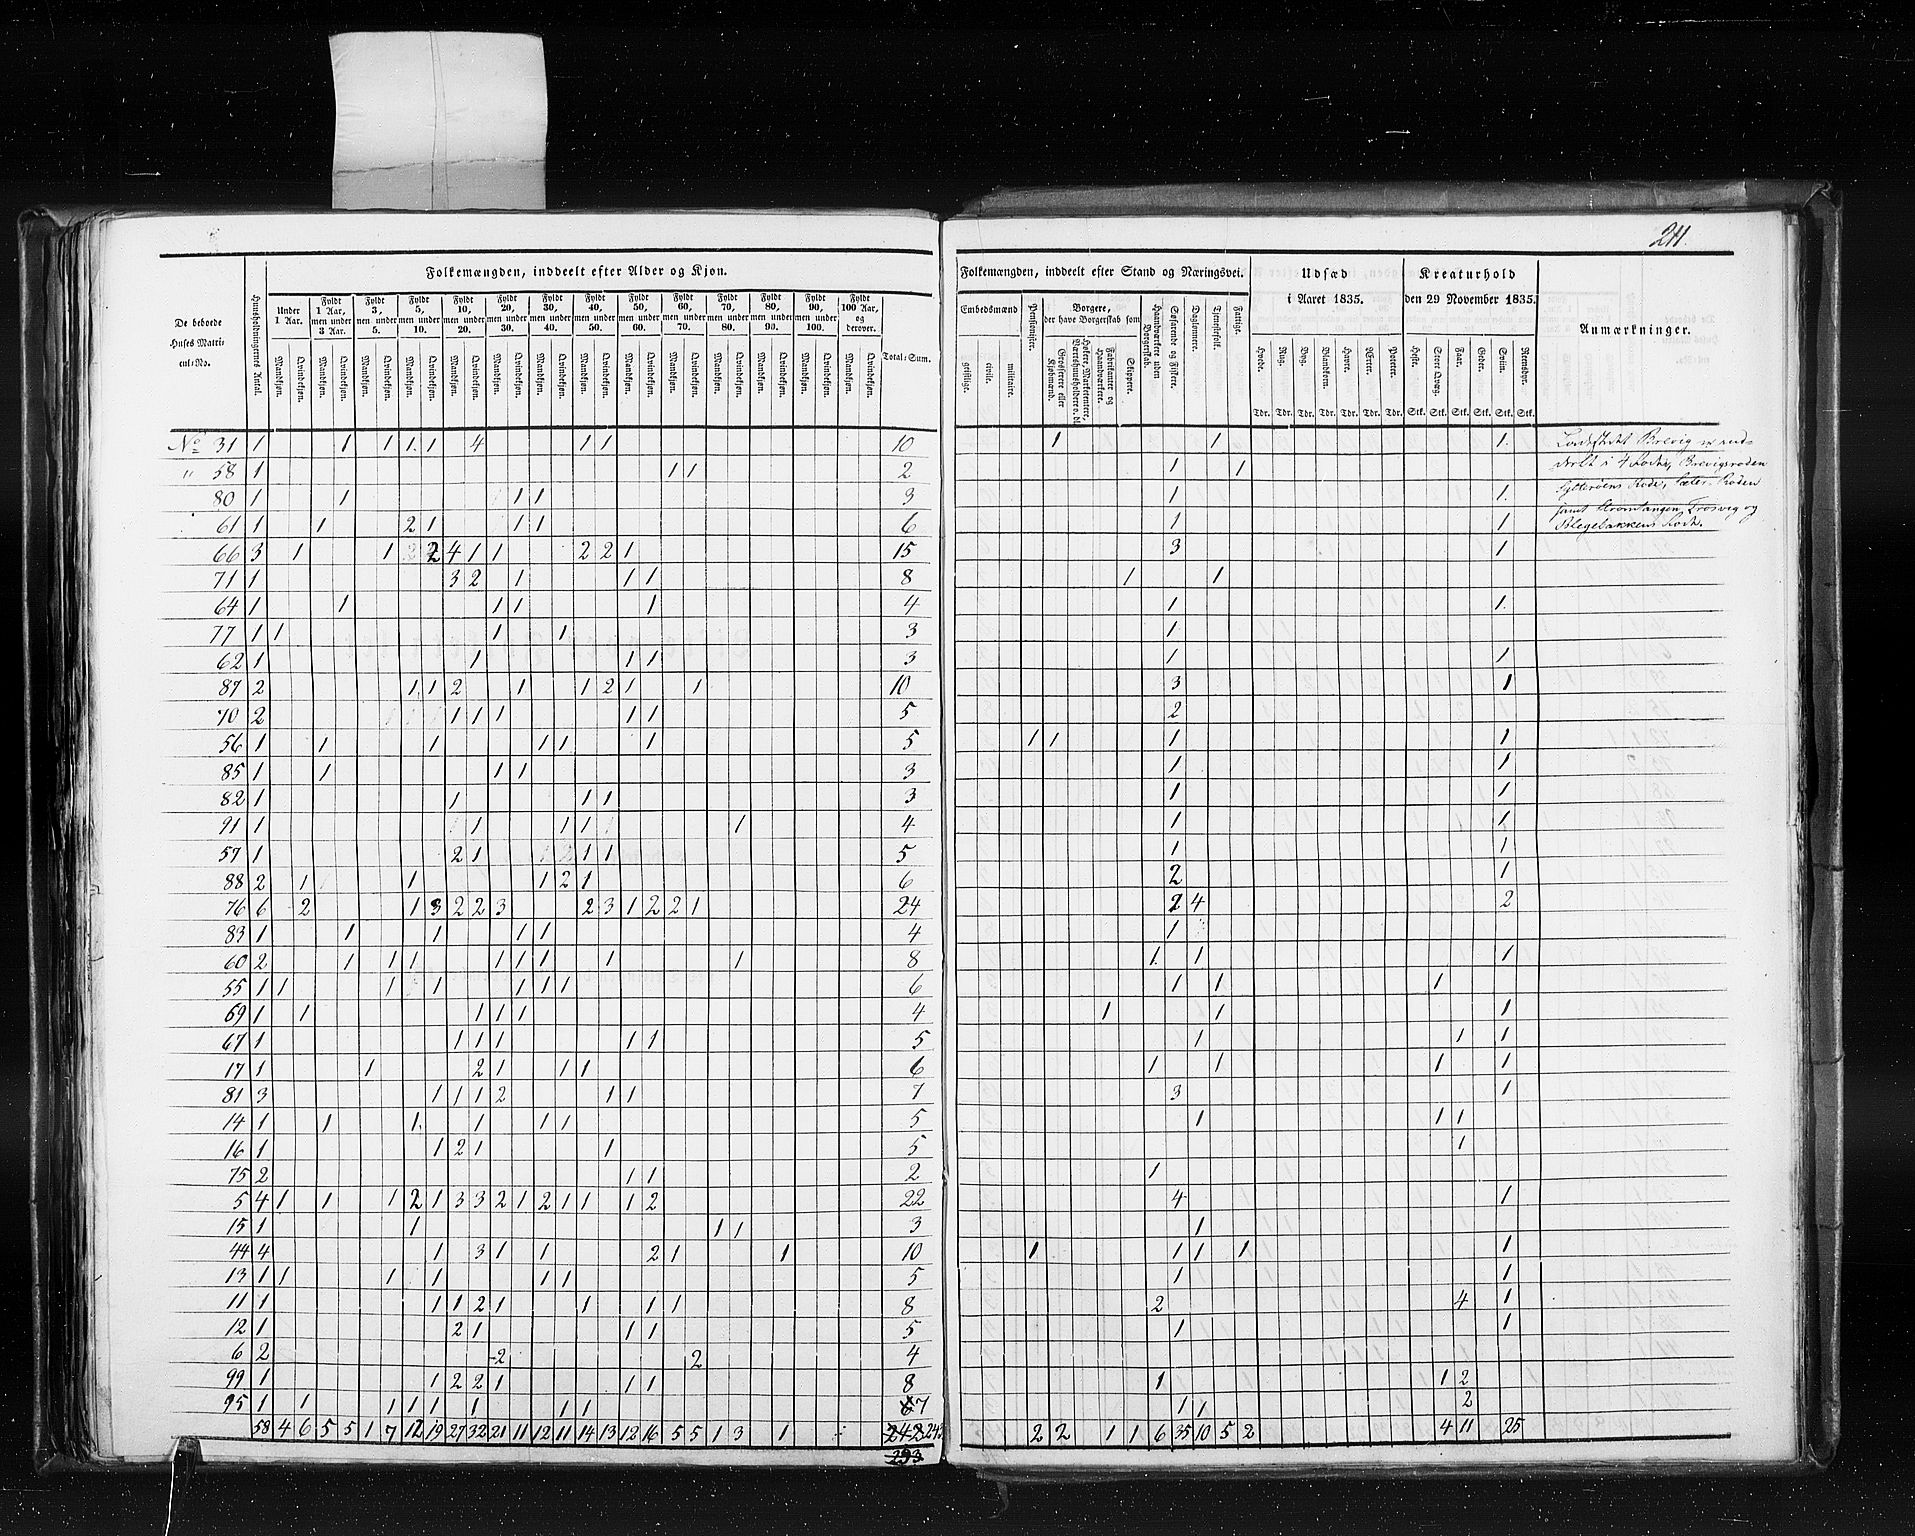 211.
Folkemængden, inddeelt efter Alder og Kjøn.
De beboede Huses Matricul-No.
Huusholdningernes Antal.
Under 1 Aar.
Fyldt 1 Aar, men under 3 Aar.
Fyldt 3, men under 5.
Fyldt 5, men under 10.
Fyldt 10, men under 20.
Fyldt 20, men under 30.
Fyldt 30, men under 40.
Fyldt 40, men under 50.
Fyldt 50, men under 60.
Fyldt 60, men under 70.
Fyldt 70, men under 80.
Fyldt 80, men under 90.
Fyldt 90, men under 100.
Fyldt 100 Aar, og derover.
Mandkjøn. Qvindekjøn.
Total-Sum.
Folkemængden, inddeelt efter Stand og Næringsvei.
Embedsmænd
geistlige. civile. militaire.
Pensionister.
Borgere, der have Borgerskab som
Grosserere eller Kjøbmænd.
Høkere, Marketentere, Værtshuusholdere o. dl.
Fabrikanter og Haandværkere.
Skippere.
Haandværkere uden Borgerskab.
Søfarende og Fiskere.
Daglønnere.
Tjenestefolk.
Fattige.
Udsæd i Aaret 1835.
Hvede. Rug. Byg. Blandkorn. Havre. Ærter. Poteter.
Tdr. Tdr. Tdr. Tdr. Tdr. Tdr. Tdr.
Kreaturhold den 29 November 1835.
Heste. Større Qvæg. Faar. Geder. Sviin. Rensdyr.
Stk. Stk. Stk. Stk. Stk. Stk.
Anmærkninger.
No 31 1 1 1 1 1 4 1 1 10 1 1 1
" 58 1 1 1 2 1 1
80 1 1 1 1 3 1 1
61 1 1 2 1 1 1 6 1 1
66 3 1 1 2 4 1 1 2 2 1 15 3 1
71 1 3 2 1 1 1 8 1 1
64 1 1 1 1 1 4 1 1
77 1 1 1 1 3 1
62 1 1 1 1 3 1 1
87 2 1 1 2 1 1 2 1 1 10 3 1
70 2 1 1 1 1 1 5 2
56 1 1 1 1 1 1 5 1 1 1 1
85 1 1 1 1 3 1 1
82 1 1 1 1 3 1 1
91 1 1 1 1 1 4 1 1
57 1 2 1 1 1 5 1 1
88 2 1 1 1 2 1 6 2 1
76 6 2 1 3 2 2 3 2 3 1 2 2 1 24 2 4 2
83 1 1 1 1 1 4 1
60 2 1 1 1 1 1 1 1 1 8 1 1 1
55 1 1 1 1 1 1 1 6 1 1 1
69 1 1 1 1 1 4 1 1 1
67 1 1 1 1 1 1 5 1 1 1
17 1 1 2 1 1 1 6 1 1 1 1
81 3 1 1 1 2 1 1 7 3 1
14 1 1 1 1 1 1 5 1 1 1
16 1 1 2 1 1 5 1
75 2 1 1 2 1
5 4 1 1 1 2 1 3 3 2 1 2 1 1 1 2 22 4 1
15 1 1 1 1 3 1
44 4 1 3 1 1 2 1 1 10 1 1 1 1 1
13 1 1 1 1 1 1 5 1 1
11 1 1 1 2 1 1 1 1 8 2 4 1
12 1 2 1 1 1 5 1 1
6 2 2 2 4
99 1 1 2 2 1 1 1 8 1 1 2
95 1 1 1 1 1 1 1 1 7 1 1 2
58 4 6 5 5 1 7 12 19 27 32 21 11 12 11 14 13 12 16 5 5 1 3 1 242 243 2 2 1 1 6 35 10 5 2 4 11 25
293
Ladestedet Brevig er ind-
deelt i 4 Roder, Brevigsroden
Sylterøens Rode, Sæter Roden
samt Strømtangen, Trosvig og
Blegebakkens Rode.